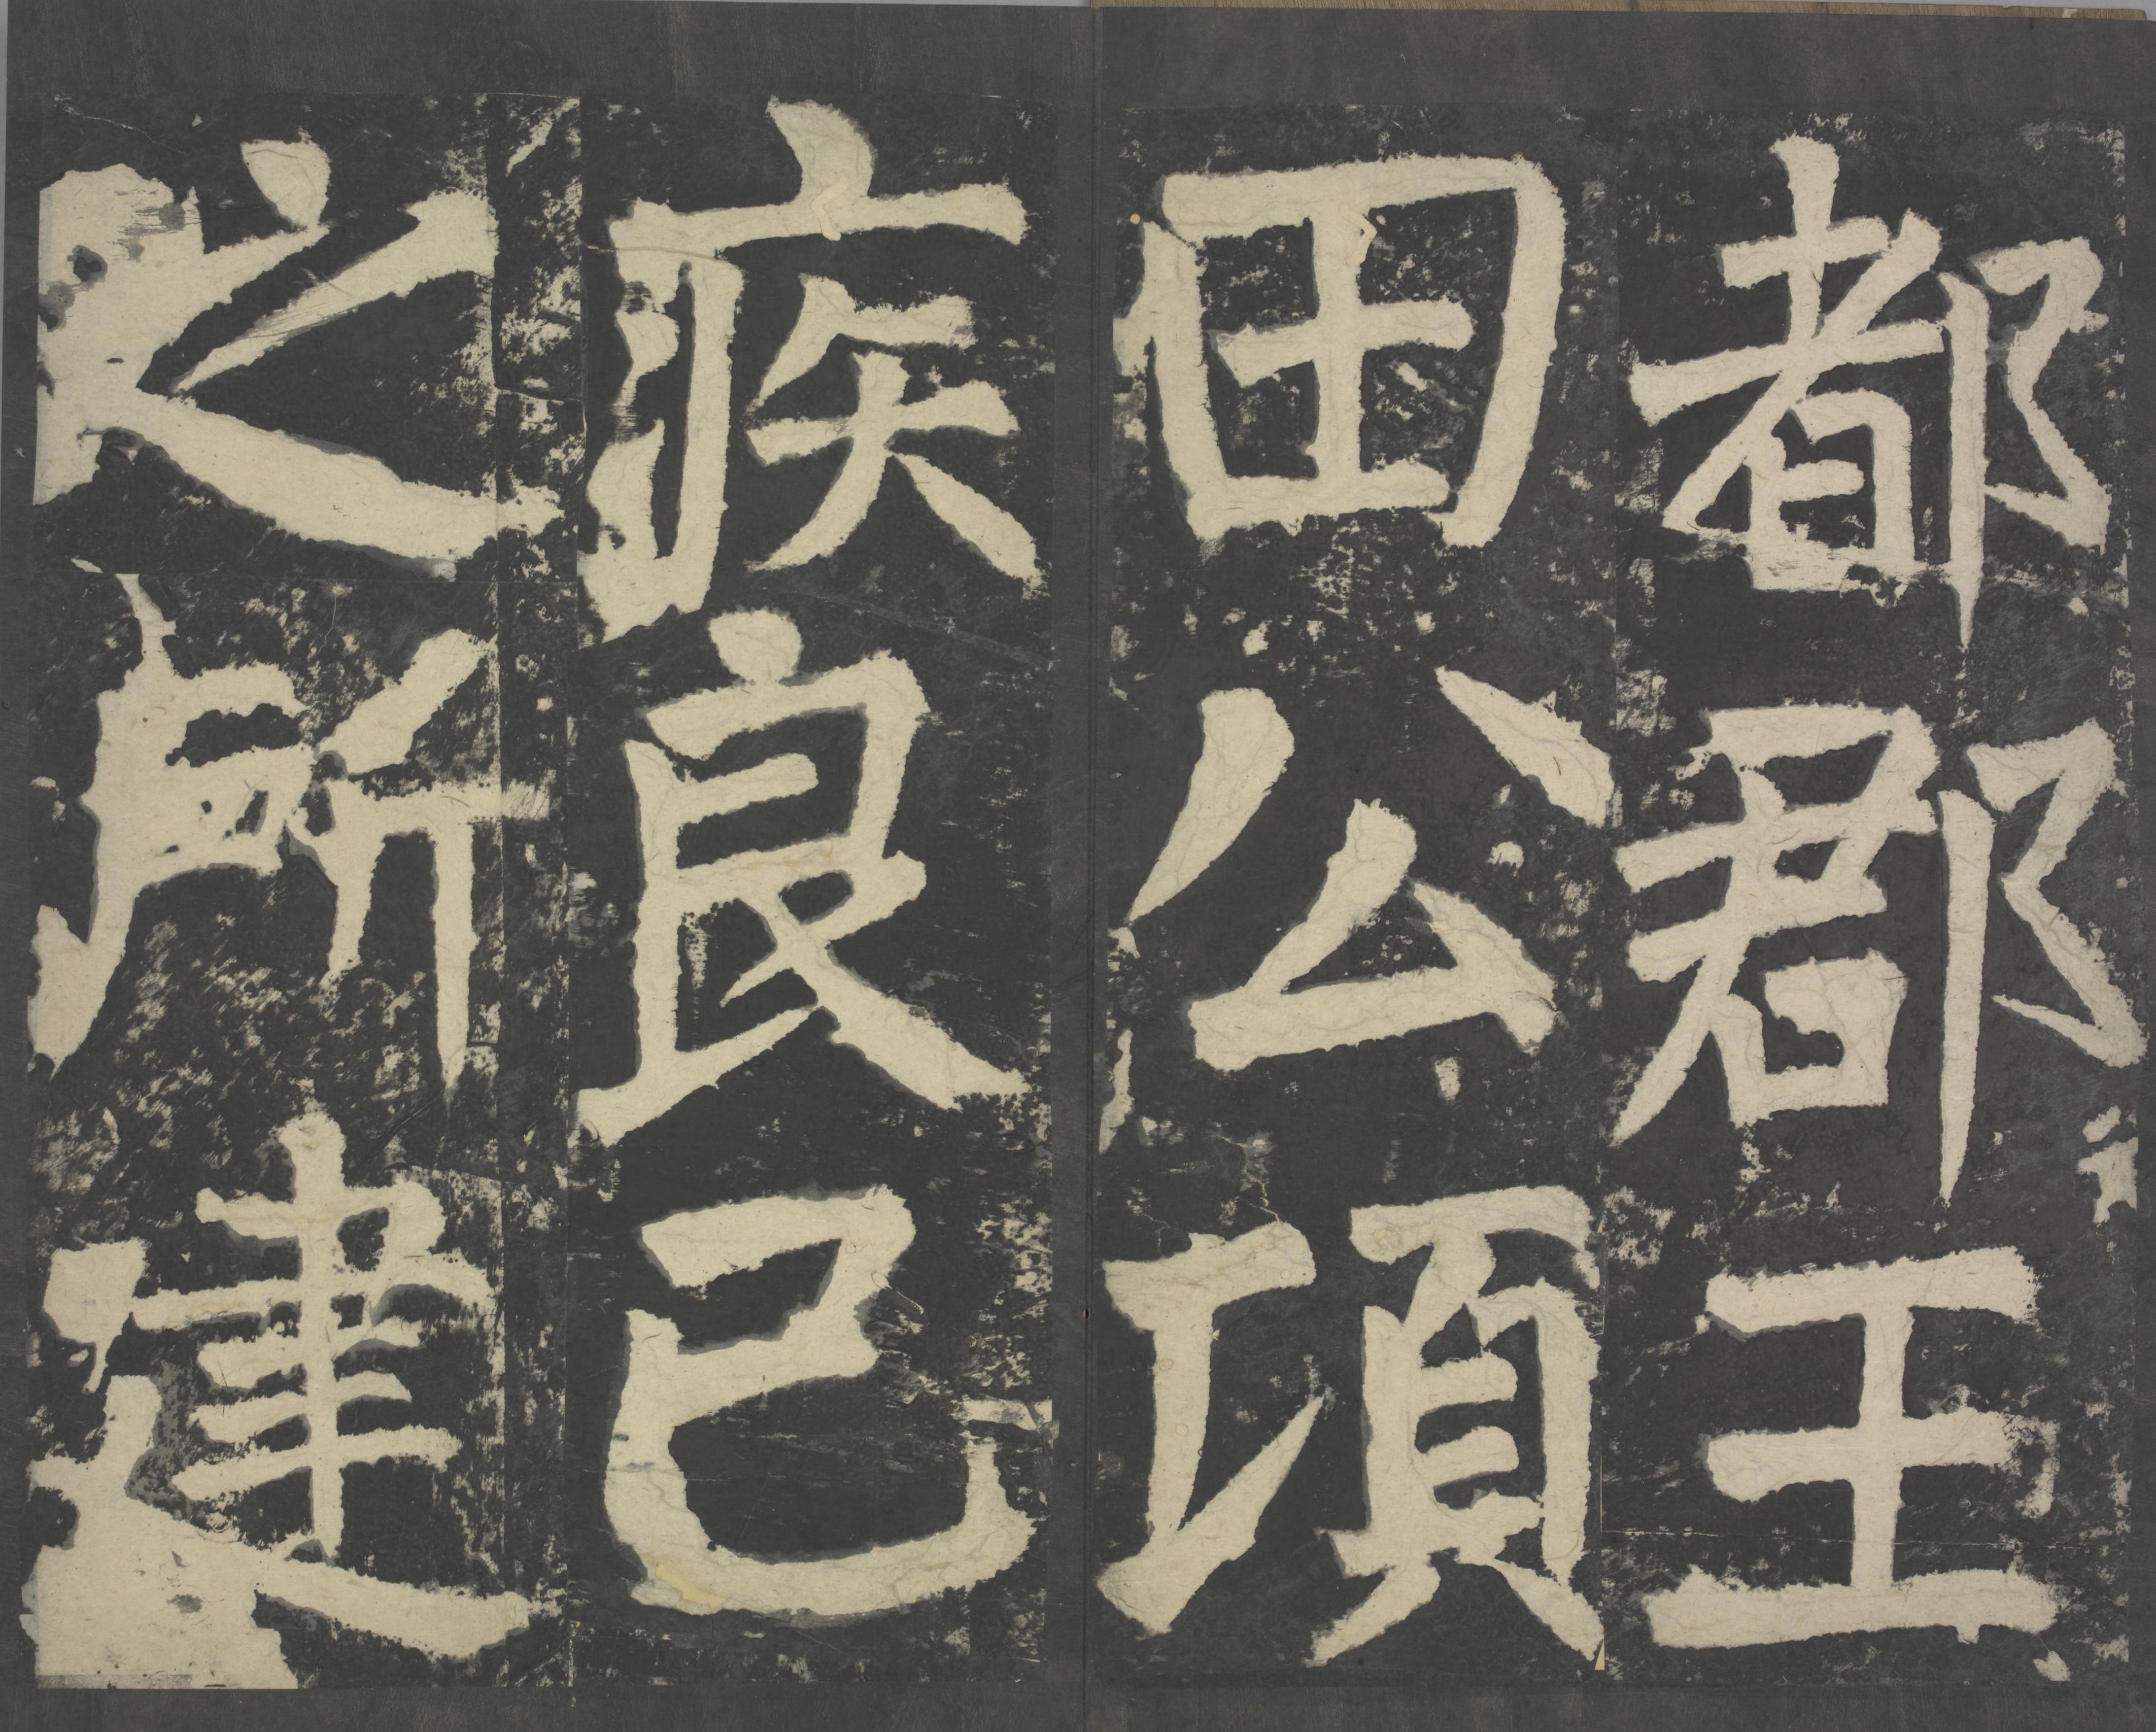 都郡王
田公頃
疾良已
之所建